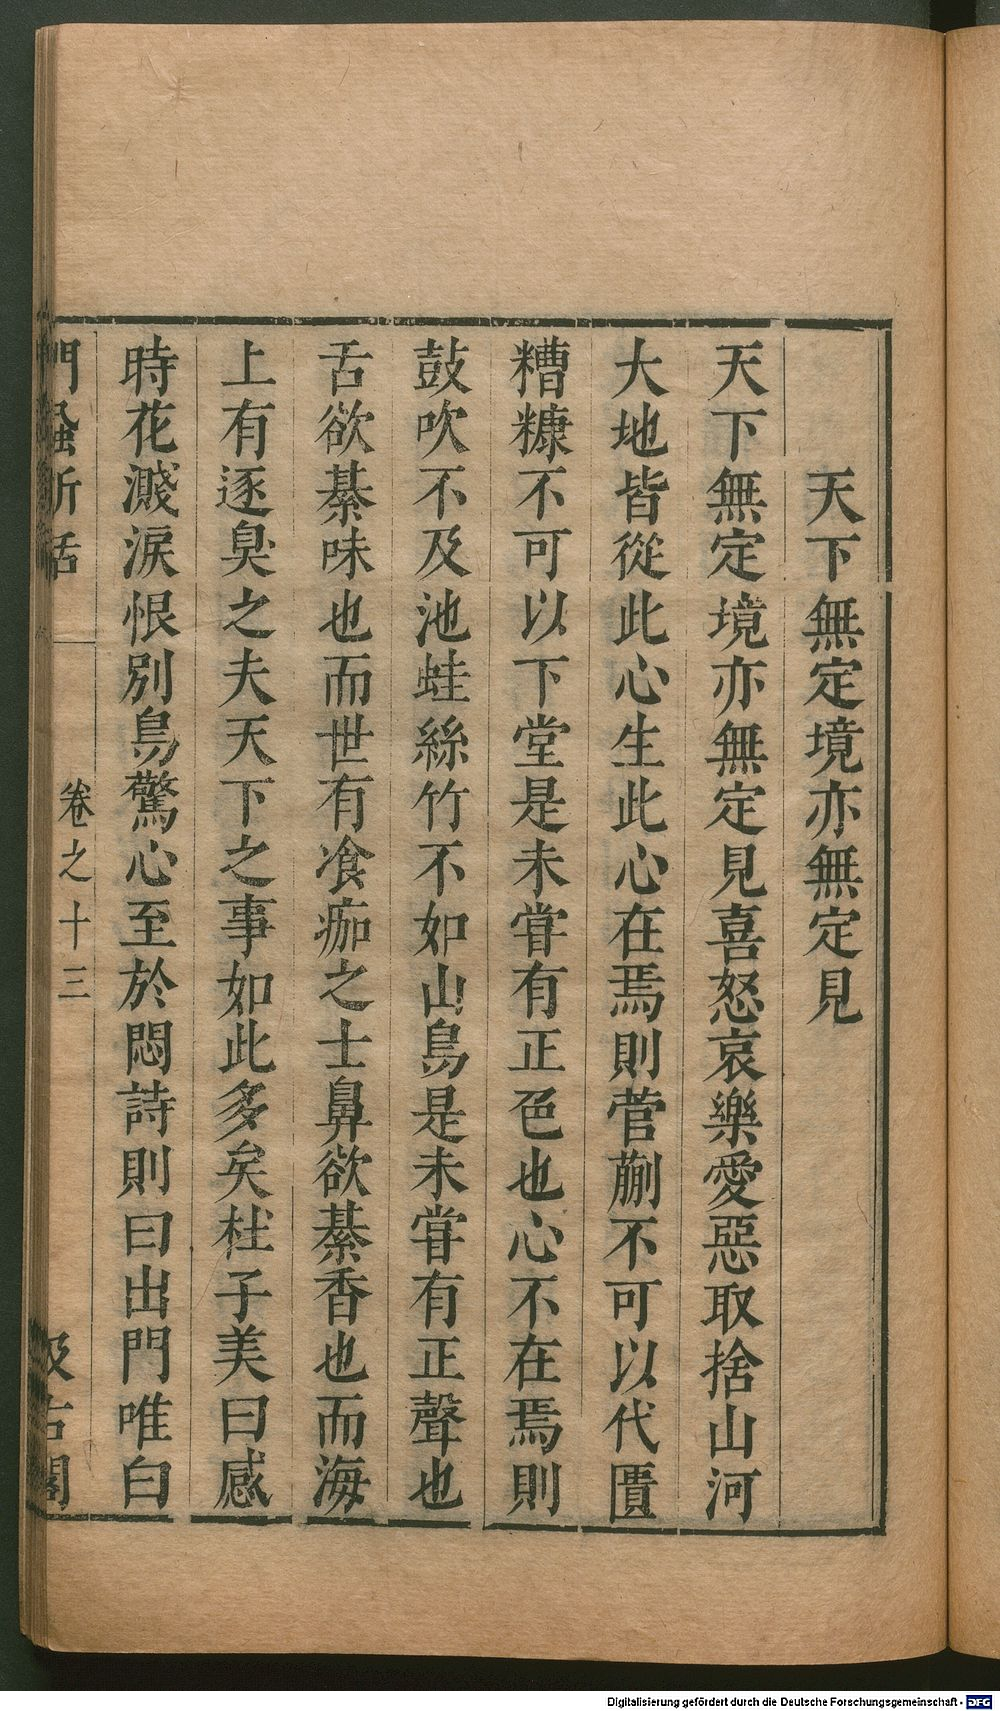 天下無定境亦無定見
天下無定境亦無定見喜怒哀樂愛惡取捨山河
大地皆從此心生此心在焉則菅蒯不可以代匱
糟糠不可以下堂是未甞有正色也心不在焉則
鼓吹不及池蛙絲竹不如山鳥是未甞有正聲也
舌欲綦味也而世有飡痂之士鼻欲綦香也而海
上有逐臭之夫天下之事如此多矣杜子美曰感
時花濺淚恨別鳥驚心至於悶詩則曰出門唯白
門蝨新話
卷之十三
汲古閣
Digitalisierung gefördert durch die Deutsche Forschungsgemeinschaft - DFG